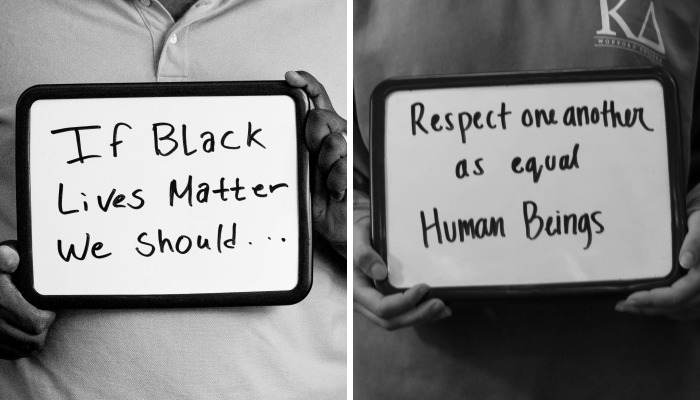 If Black
Lives Matter
We should...
KΔ
WOFFORD COLLEGE
Respect one another
as equal
Human Beings